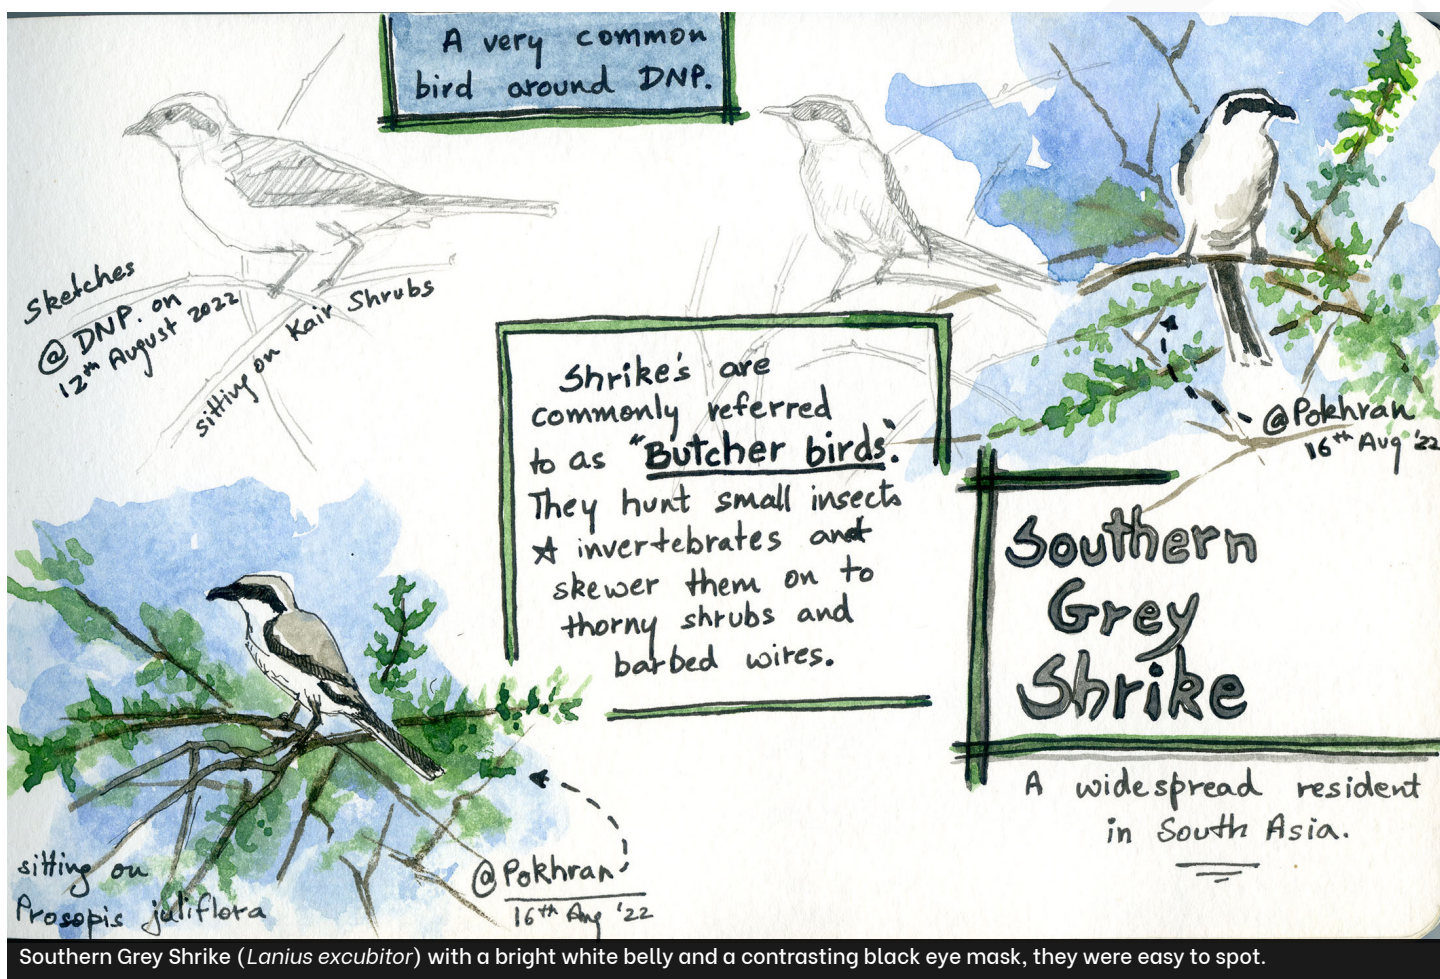 A very common
bird around DNP.
Sketches
@ DNP. on
12th August 2022
sitting on Kair Shrubs
Shrike's are
commonly referred
to as "Butcher birds".
They hunt small insects
& invertebrates and
skewer them on to
thorny shrubs and
barbed wires.
@Pokhran
16th Aug '22
Southern
Grey
Shrike
A widespread resident
in South Asia.
sitting on
Prosopis juliflora
@Pokhran
16th Aug '22
Southern Grey Shrike (Lanius excubitor) with a bright white belly and a contrasting black eye mask, they were easy to spot.